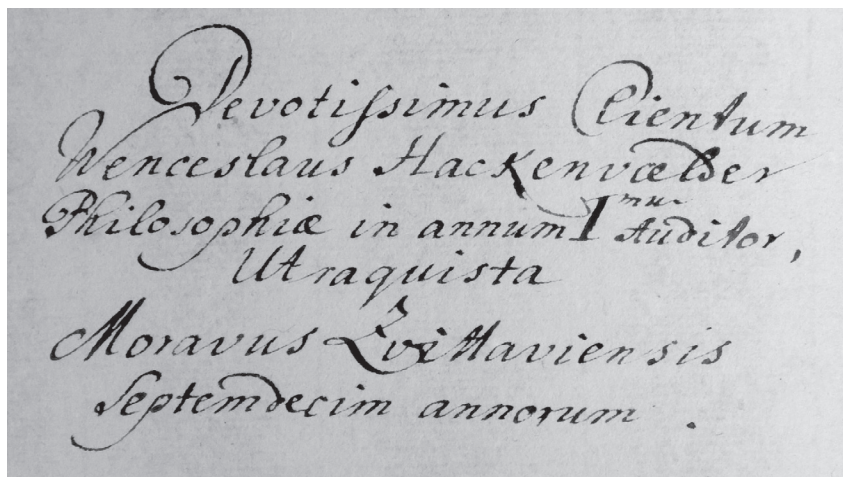 Devotissimus Clientum
Wenceslaus Hackenvælder
Philosophiæ in annum I mum Auditor,
Utraquista
Moravus Zvittaviensis
Septemdecim annorum .